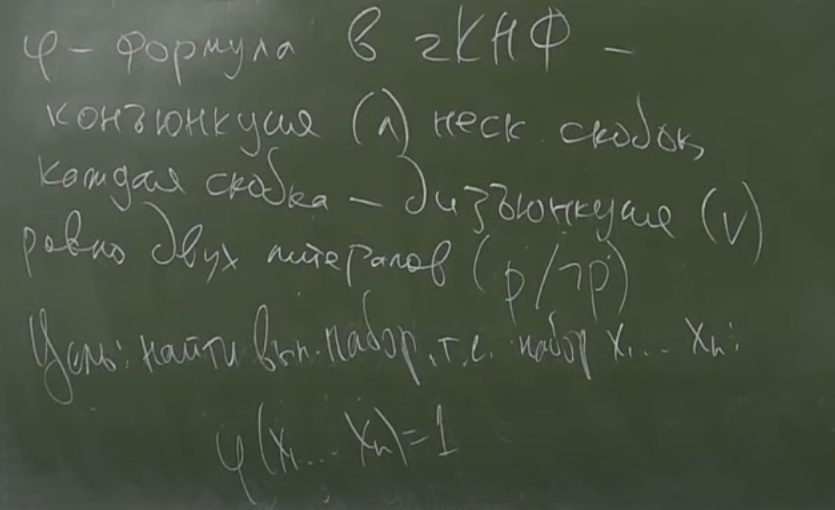 φ - формула в 2КНФ -
конъюнкция (∧) неск. скобок,
каждая скобка - дизъюнкция (∨)
ровно двух литералов (p/¬p)
Цель: найти вып. набор, т.е. набор x₁... xₙ:
φ(x₁... xₙ)=1